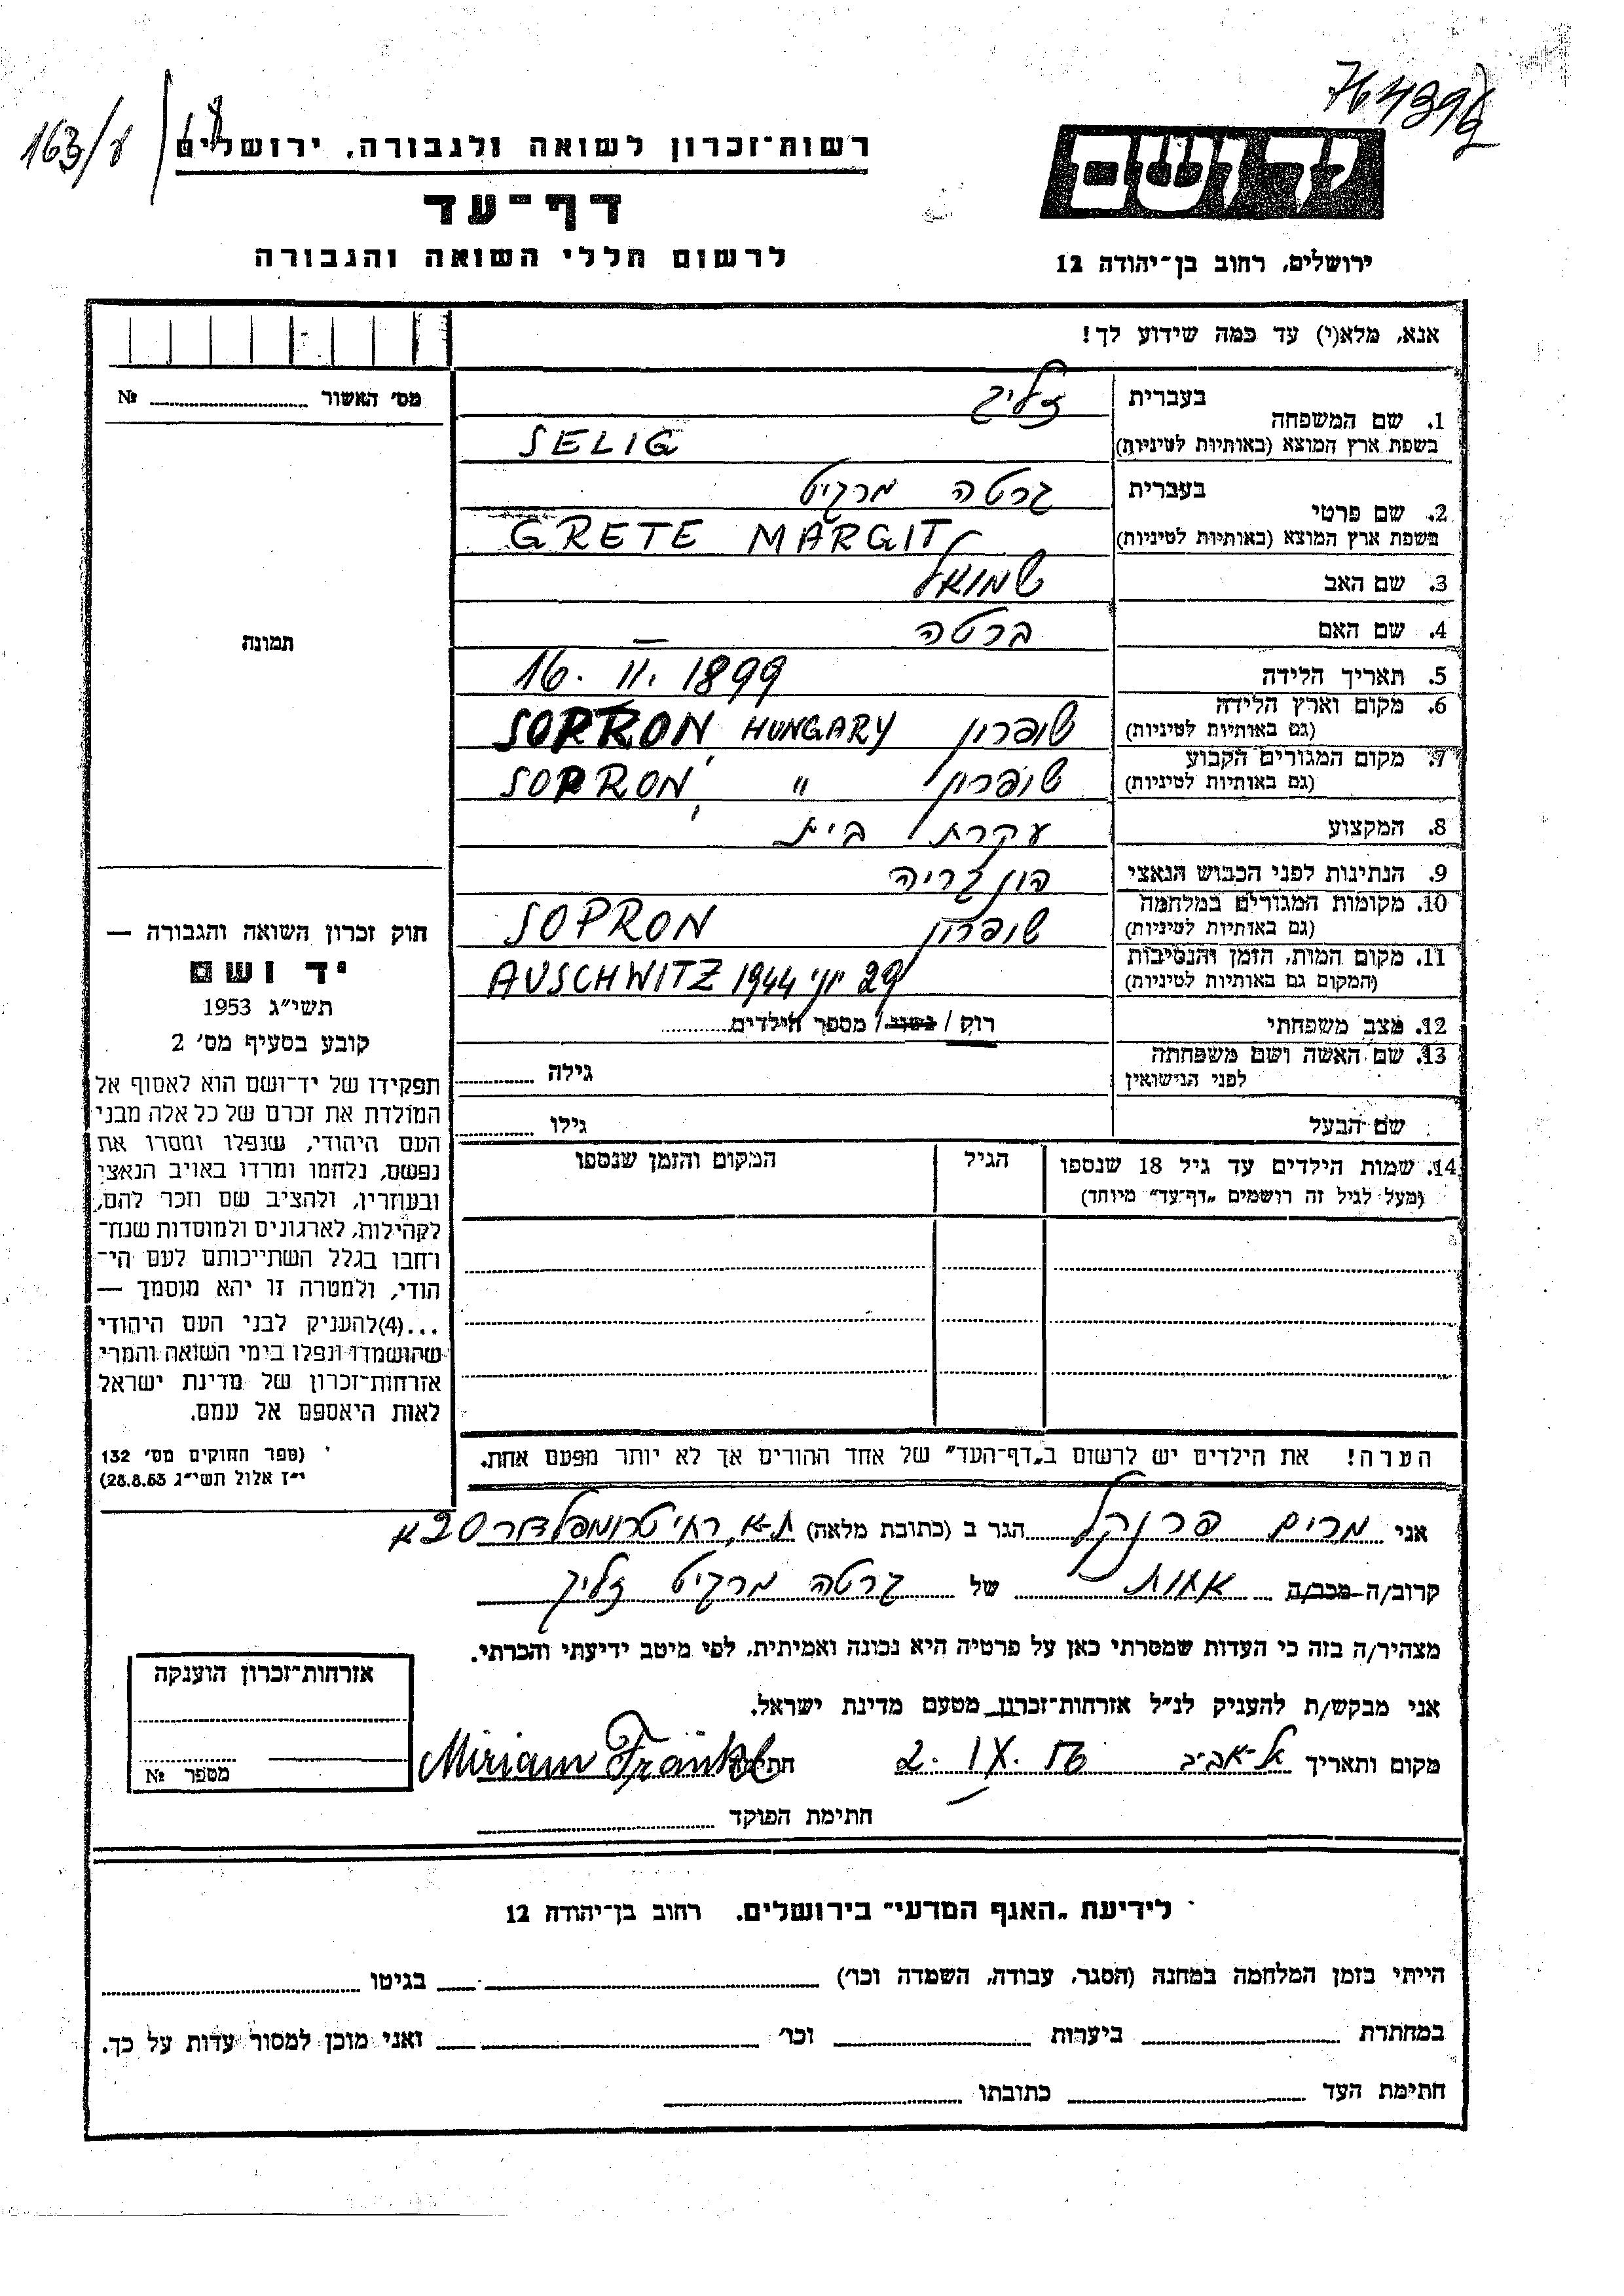 763439
163/ז
רשות־זכרון לשואה ולגבורה, ירושלים
דף־עד
לרשום חללי השואה והגבורה
יד ושם
ירושלים, רחוב בן־יהודה 12
אנא, מלא(י) עד כמה שידוע לך!
מס׳ האשור № 
1. שם המשפחה
בעברית זליג
בשפת ארץ המוצא (באותיות לטיניות) SELIG
2. שם פרטי
בעברית גרטה מרגיט
בשפת ארץ המוצא (באותיות לטיניות) GRETE MARGIT
3. שם האב שמואל
4. שם האם ברטה —
5. תאריך הלידה 16. II. 1899
6. מקום וארץ הלידה שופרון SOPRON, HUNGARY
(גם באותיות לטיניות)
7. מקום המגורים הקבוע שופרון SOPRON, "
(גם באותיות לטיניות)
8. המקצוע עקרת בית
9. הנתינות לפני הכבוש הנאצי הונגריה
10. מקומות המגורים במלחמה שופרון SOPRON
(גם באותיות לטיניות)
11. מקום המות, הזמן והנסיבות AUSCHWITZ 1944 יוני 29
(המקום גם באותיות לטיניות)
12. מצב משפחתי רוק / נשוי / מספר הילדים
13. שם האשה ושם משפחתה
לפני הנישואין גילה
שם הבעל גילו
14. שמות הילדים עד גיל 18 שנספו הגיל המקום והזמן שנספו
(מעל לגיל זה רושמים „דף־עד״ מיוחד)
תמונה
חוק זכרון השואה והגבורה —
יד ושם
תשי״ג 1953
קובע בסעיף מס׳ 2
תפקידו של יד־ושם הוא לאסוף אל
המולדת את זכרם של כל אלה מבני
העם היהודי, שנפלו ומסרו את
נפשם, נלחמו ומרדו באויב הנאצי
ובעוזריו, ולהציב שם וזכר להם,
לקהילות, לארגונים ולמוסדות שנח־
רחבו בגלל השתייכותם לעם הי־
הודי, ולמטרה זו יהא מוסמך —
...(4) להעניק לבני העם היהודי
שהושמדו ונפלו בימי השואה והמרי
אזרחות־זכרון של מדינת ישראל
לאות היאספם אל עמם.
(ספר החוקים מס׳ 132
י״ז אלול תשי״ג 28.8.53)
הערה! את הילדים יש לרשום ב„דף־העד״ של אחד ההורים אך לא יותר מפעם אחת.
אני מרים פרנקל הגר ב (כתובת מלאה) ת-א, רח׳ טרומפלדור 20א
קרוב/ה מכר/ה אחות של גרטה מרגיט זליג
מצהיר/ה בזה כי העדות שמסרתי כאן על פרטיה היא נכונה ואמיתית, לפי מיטב ידיעתי והכרתי.
אני מבקש/ת להעניק לנ״ל אזרחות־זכרון מטעם מדינת ישראל.
מקום ותאריך תל-אביב 2. IX. 56 חתימה Miriam Fränkl
חתימת הפוקד
אזרחות־זכרון הוענקה
מספר №
לידיעת „האגף המדעי״ בירושלים. רחוב בן־יהודה 12
הייתי בזמן המלחמה במחנה (הסגר, עבודה, השמדה וכו׳) בגיטו
במחתרת ביערות וכו׳ ואני מוכן למסור עדות על כך.
חתימת העד כתובתו